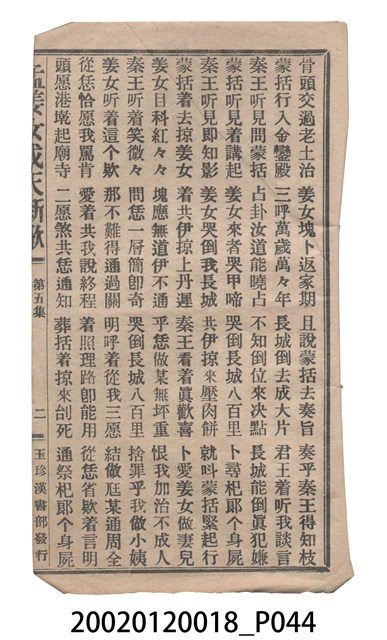 骨頭交過老土治 姜女塊卜返家期 且說蒙括去奏旨 奏乎秦王得知枝
蒙括行入金鑾殿 三呼萬歲萬々年 長城倒去成大片 君王着听我談言
秦王听見問蒙括 占卦汝道能曉占 不知倒位來決點 長城能倒眞犯嫌
蒙括听見着講起 姜女來者哭甲啼 哭倒長城八百里 卜尋杞郎个身屍
秦王听見即知影 姜女哭倒我長城 共伊掠來壓肉餅 就呌蒙括緊起行
蒙括着去掠姜女 着共伊掠上丹遲 秦王看着眞歡喜 卜愛姜女做妻兒
姜女目科紅々々 塊應無道伊不通 乎恁做某無坏重 恨我加治不成人
秦王听着笑微々 問恁一層簡卽奇 哭倒長城八百里 捨罪乎我做小姨
姜女听着這个欵 那不難得通過關 明呼着從我三愿 結做尫某通周全
從恁恰愿我罵肯 愛着共我說終程 着照理路卽能用 從恁省欵着言明
頭愿港墘起廟寺 二愿煞共恁通知 葬括着掠來刣死 通祭杞郎个身屍
第五集 二 玉珍漢書部發行
20020120018_P044